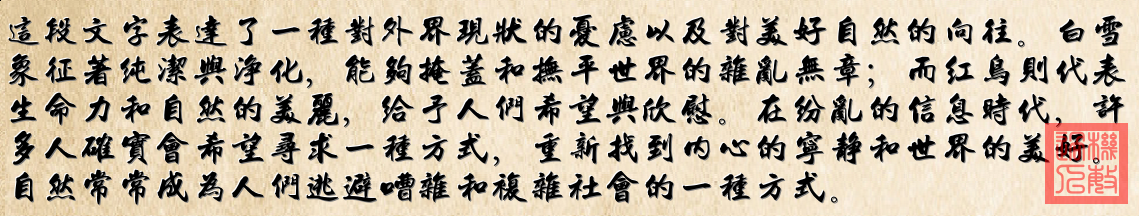 這段文字表達了一種對外界現狀的憂慮以及對美好自然的向往。白雪
象征著純潔與淨化，能夠掩蓋和撫平世界的雜亂無章；而紅鳥則代表
生命力和自然的美麗，給予人們希望與欣慰。在紛亂的信息時代，許
多人確實會希望尋求一種方式，重新找到內心的寧靜和世界的美好。
自然常常成為人們逃避嘈雜和複雜社會的一種方式。